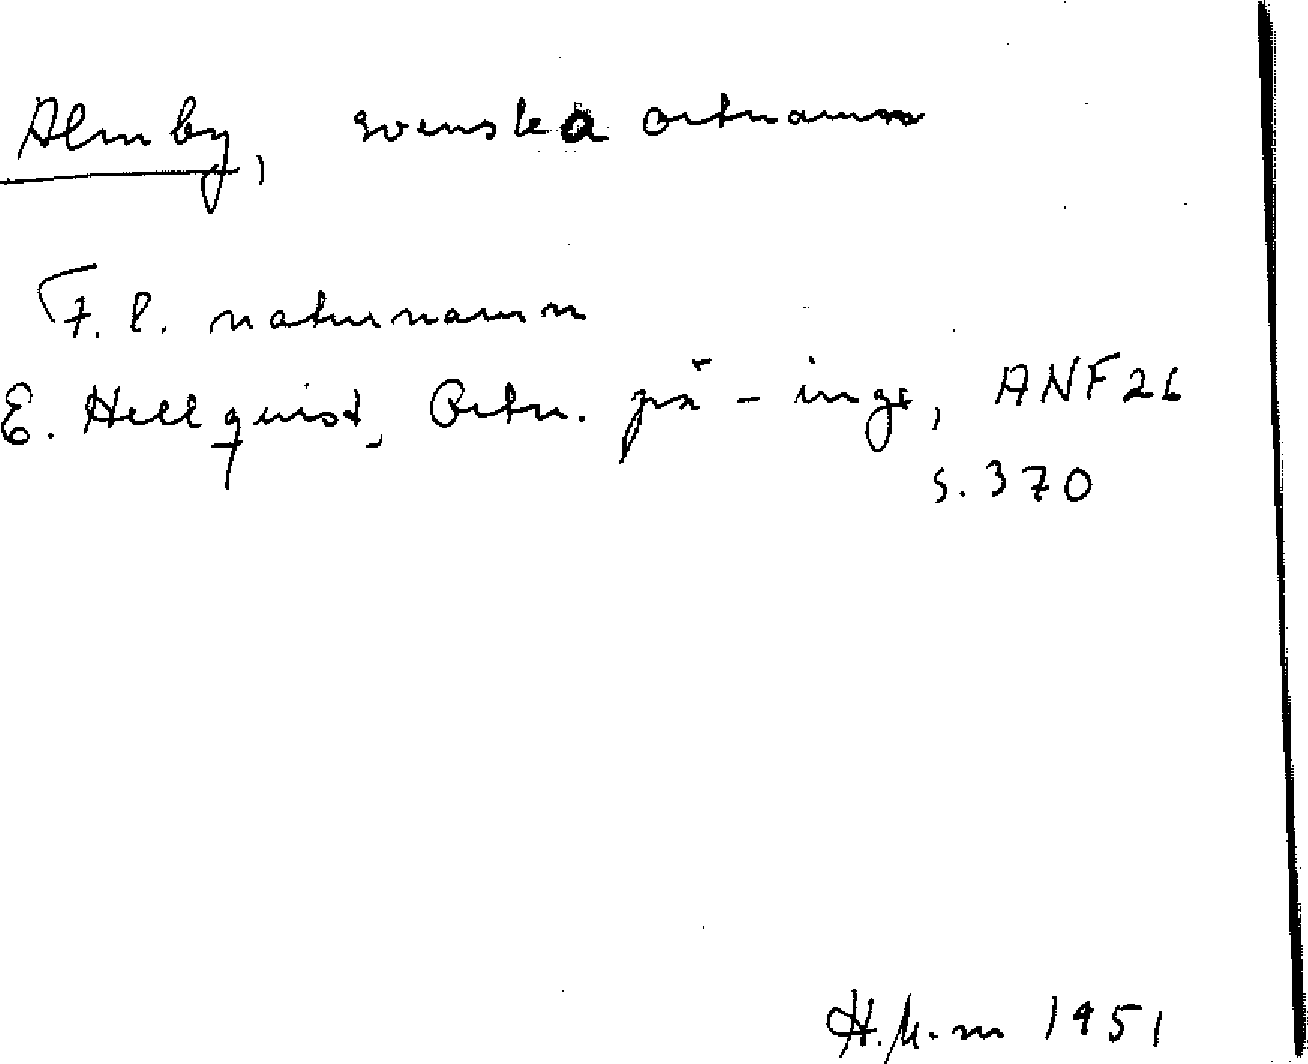 Almby, svenska ortnamn
F. l. naturnamn
E. Hellquist, Ortn. på -inge, ANF 26
s. 370
1951